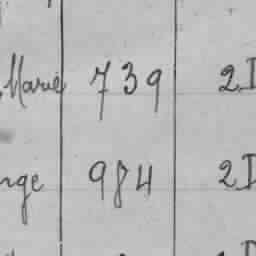 Marie 739 2D
nge 984 2D